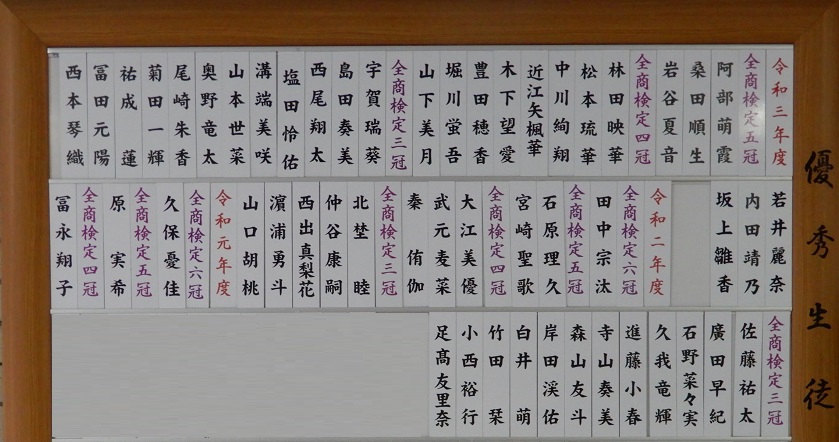 優秀生徒
令和三年度
全商検定五冠
阿部萌霞
桑田順生
岩谷夏音
全商検定四冠
林田映華
松本琉華
中川絢翔
近江矢楓華
木下望愛
豊田穂香
堀川蛍吾
山下美月
全商検定三冠
宇賀瑞葵
島田奏美
西尾翔太
塩田怜佑
溝端美咲
山本世菜
奥野竜太
尾崎朱香
菊田一輝
祐成蓮
冨田元陽
西本琴織
若井麗奈
内田靖乃
坂上雛香
令和二年度
全商検定六冠
田中宗汰
全商検定五冠
石原理久
宮崎聖歌
全商検定四冠
大江美優
武元麦菜
秦侑伽
全商検定三冠
北埜睦
仲谷康嗣
西出真梨花
濵浦勇斗
山口胡桃
令和元年度
全商検定六冠
久保憂佳
全商検定五冠
原実希
全商検定四冠
冨永翔子
全商検定三冠
佐藤祐太
廣田早紀
石野菜々実
久我竜輝
進藤小春
寺山奏美
森山友斗
岸田渓佑
白井萌
竹田栞
小西裕行
足髙友里奈